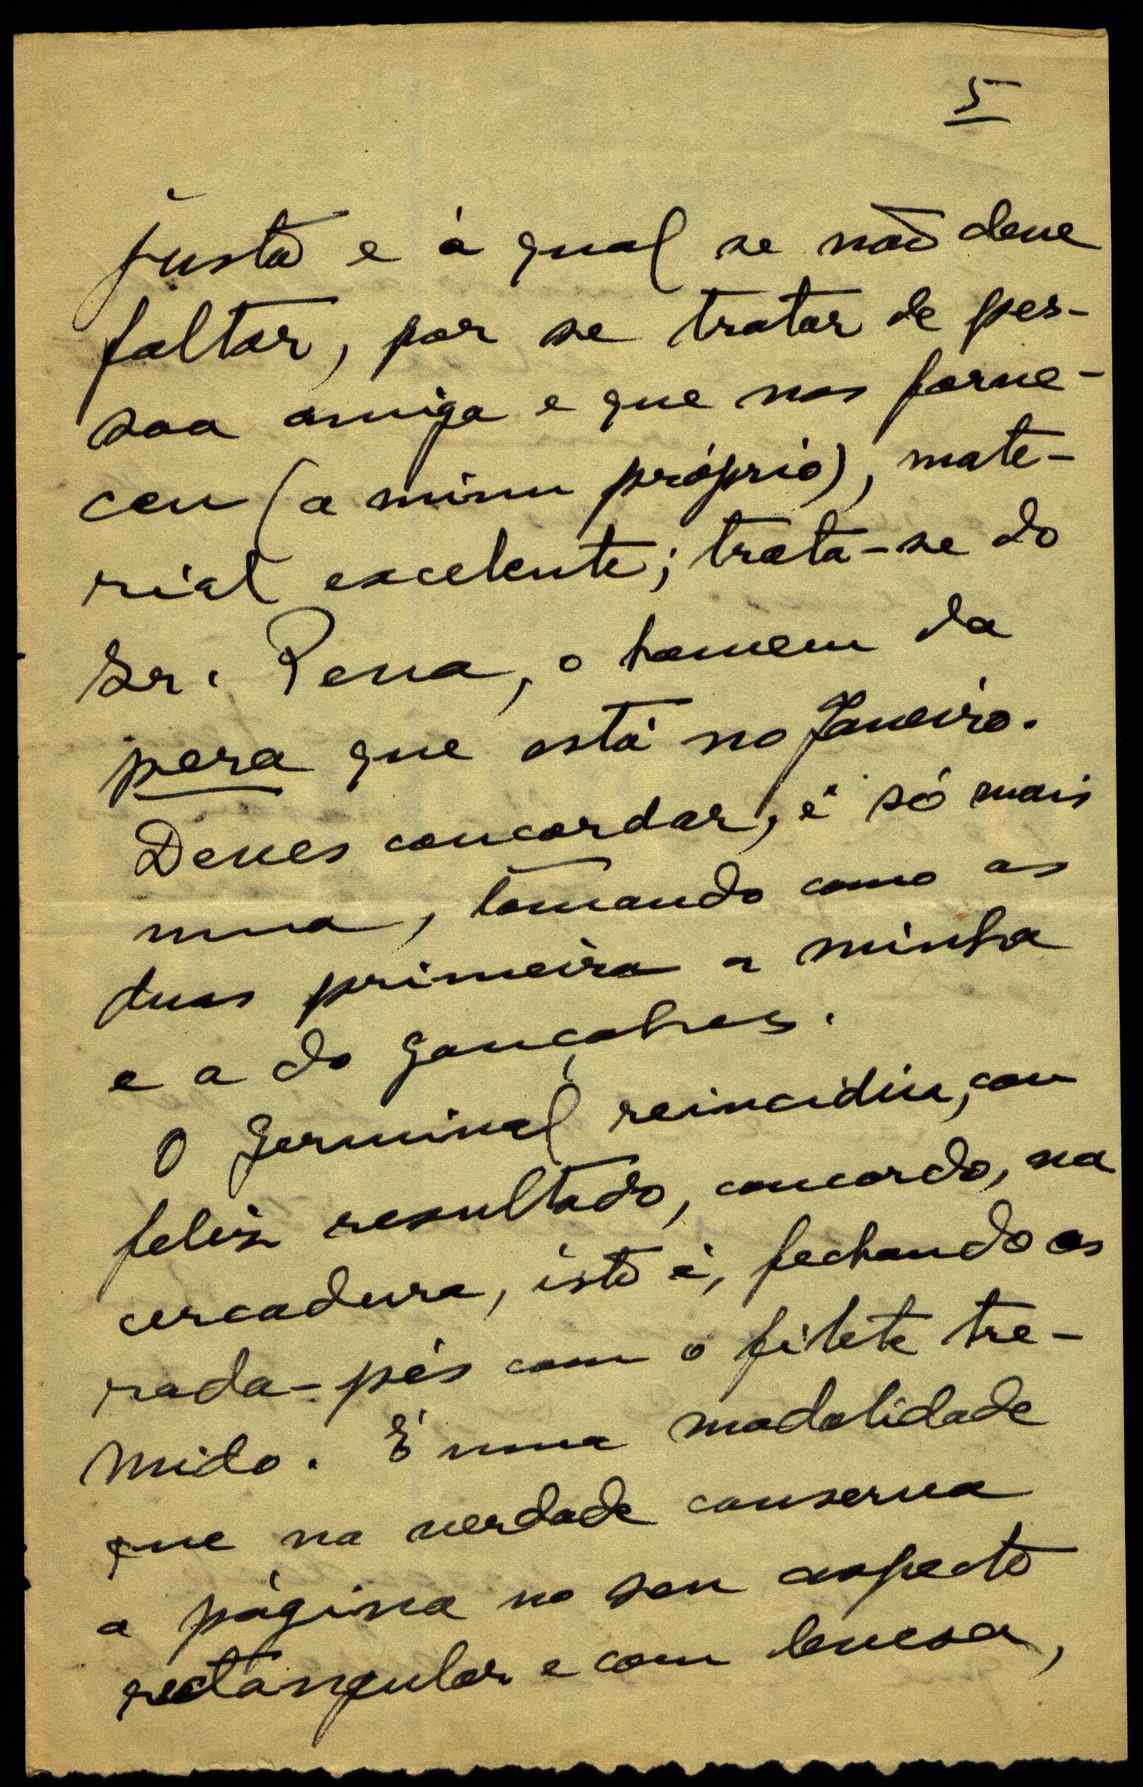 5
justa e á qual se não deve
faltar, por se tratar de pes-
soa amiga e que nos forne-
ceu (a mim próprio), mate-
rial excelente; trata-se do
Sr. Pena, o homem da
pera que está no Janeiro.
Deves concordar, é só mais
uma, tomando como as
duas primeira a minha
e a do Gonçalves.
O Germinal reincidiu, com
feliz resultado, concordo, na
cercadura, isto é, fechando os
roda-pés com o filete tre-
mido. É uma modalidade
que na verdade conserva
a página no seu aspecto
rectangular e com leveza,